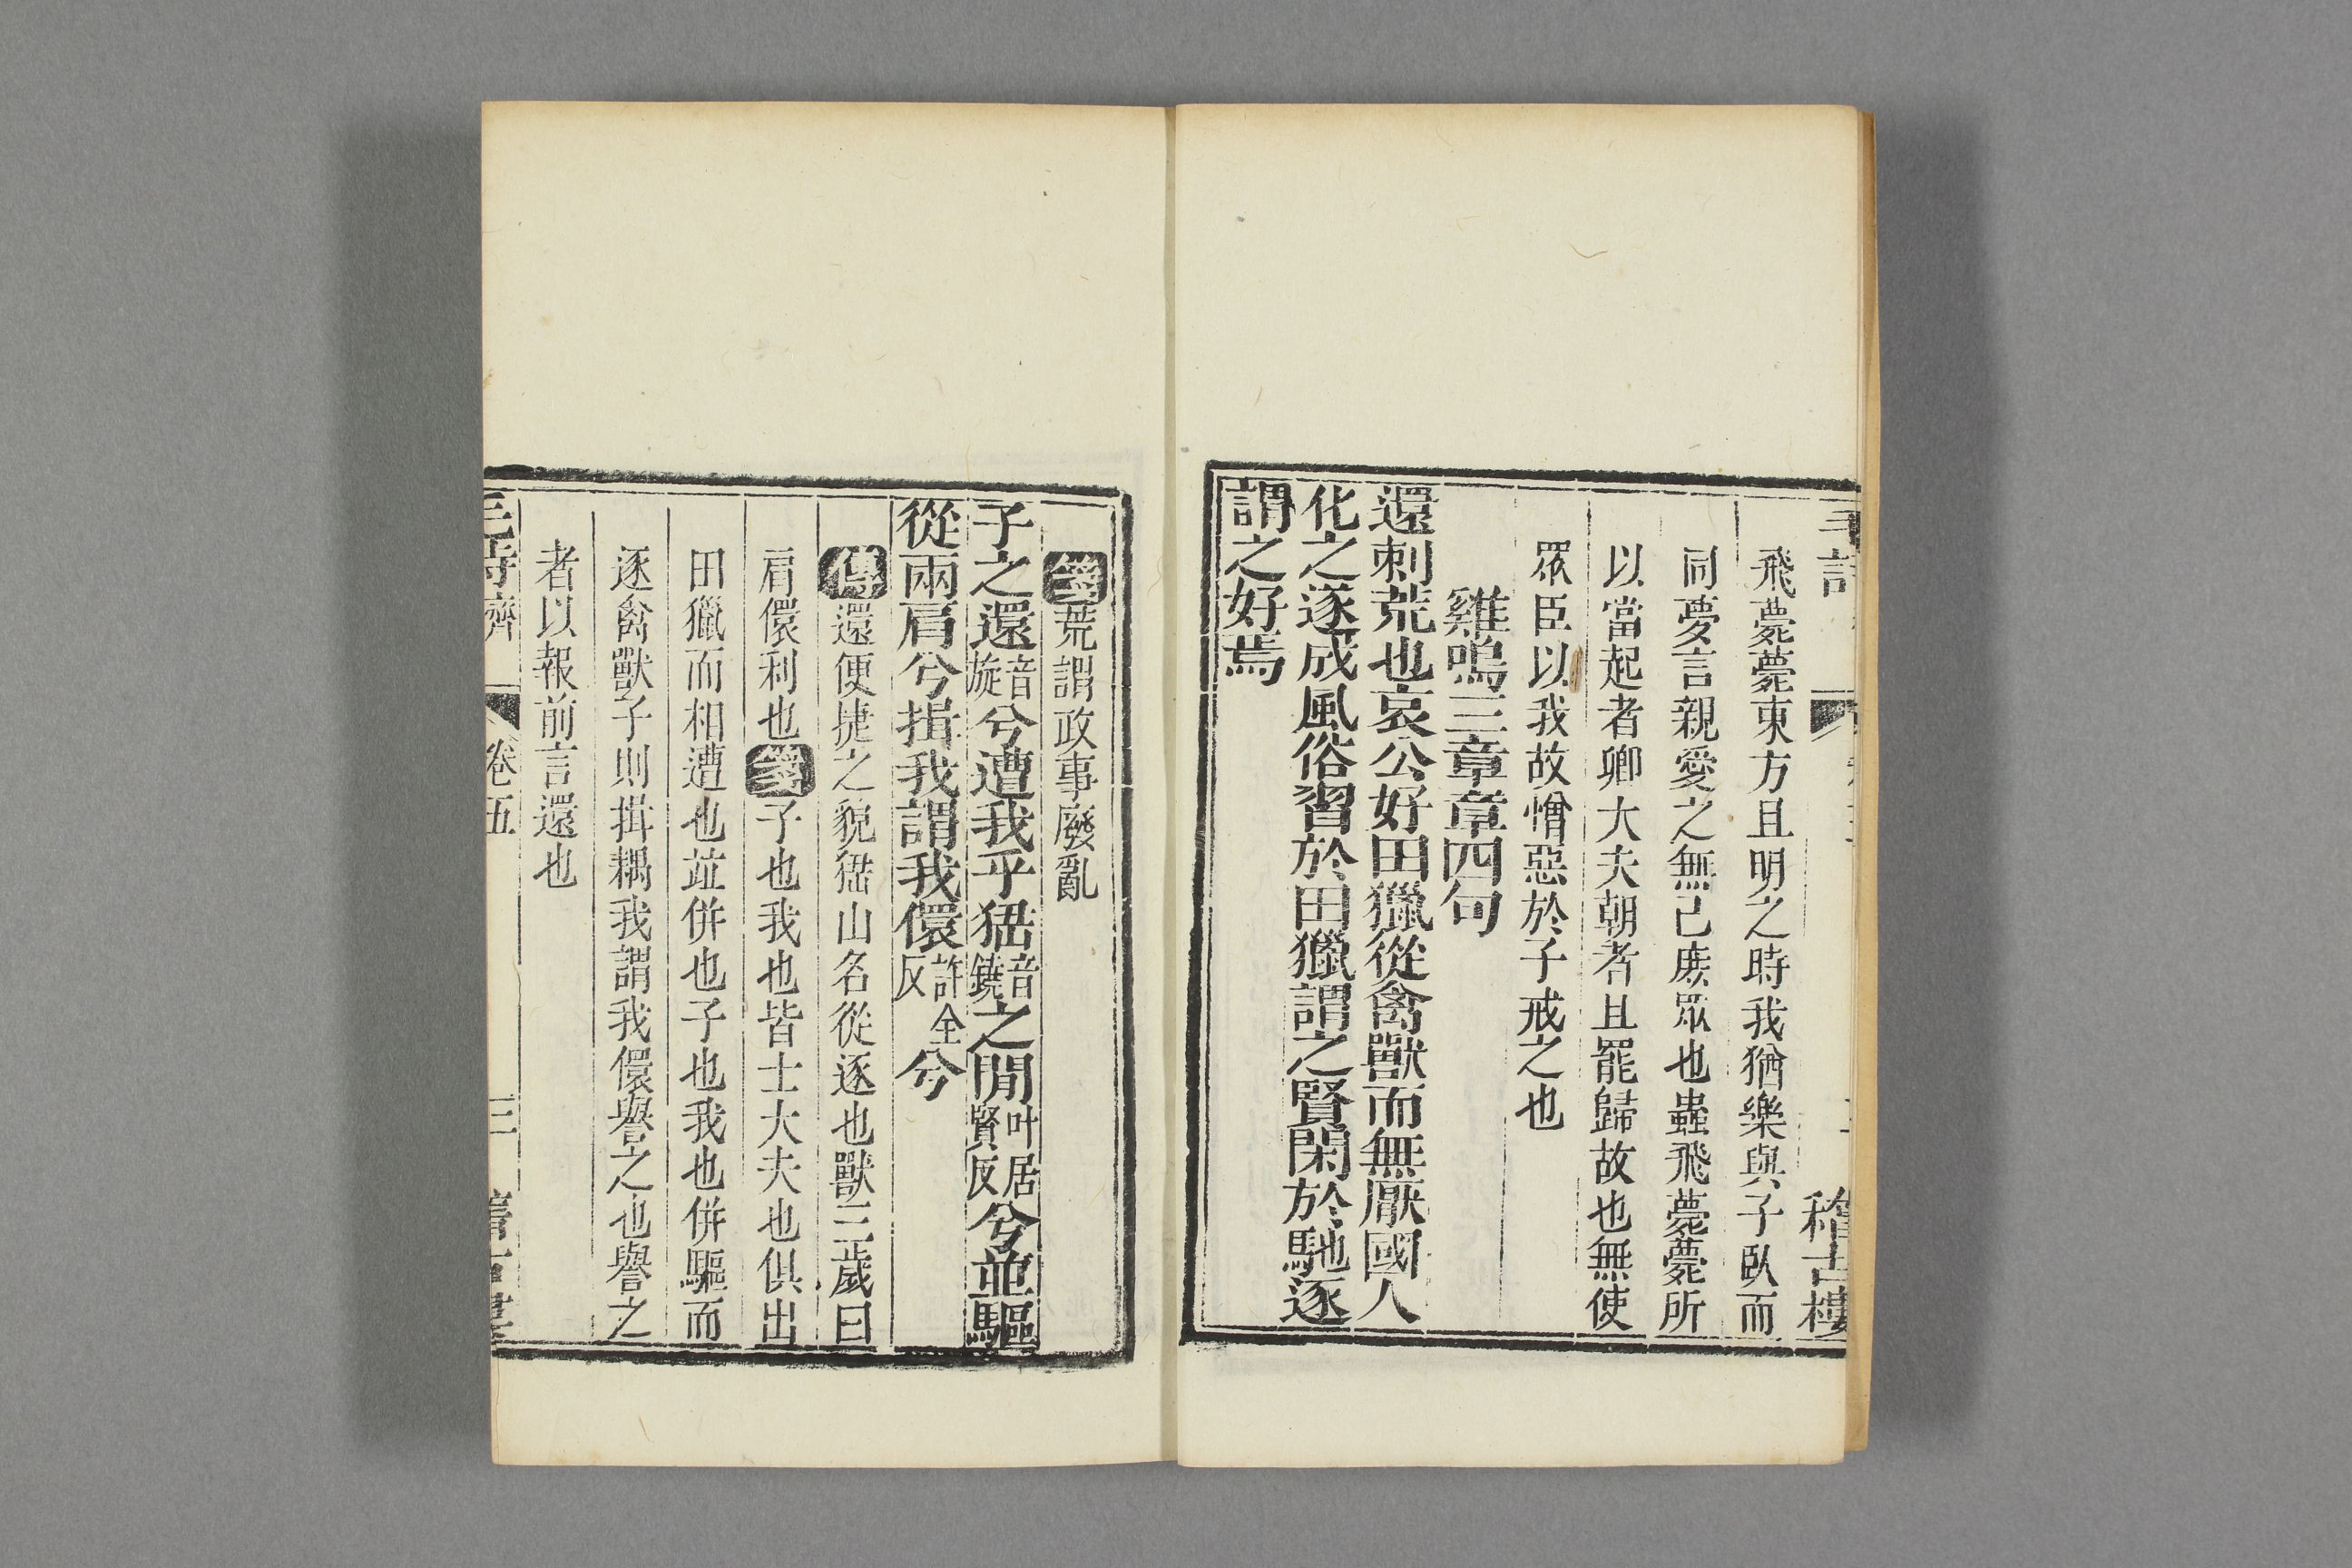 飛薨薨東方且明之時我猶樂與子臥而
同夢言親愛之無已庶眾也蟲飛薨薨所
以當起者卿大夫朝者且罷歸故也無使
眾臣以我故憎惡於子戒之也
雞鳴三章章四句
還刺荒也哀公好田獵從禽獸而無厭國人
化之遂成風俗習於田獵謂之賢閑於馳逐
謂之好焉
稽古樓
箋荒謂政事廢亂
子之還音旋兮遭我乎猺音鐃之閒叶居賢反兮並驅
從兩肩兮揖我謂我儇許全反兮
傳還便捷之貌猺山名從逐也獸三歲曰
肩儇利也箋子也我也皆士大夫也俱出
田獵而相遭也竝併也子也我也併驅而
逐禽獸子則揖耦我謂我儇譽之也譽之
者以報前言還也
毛詩 齊 卷五 三